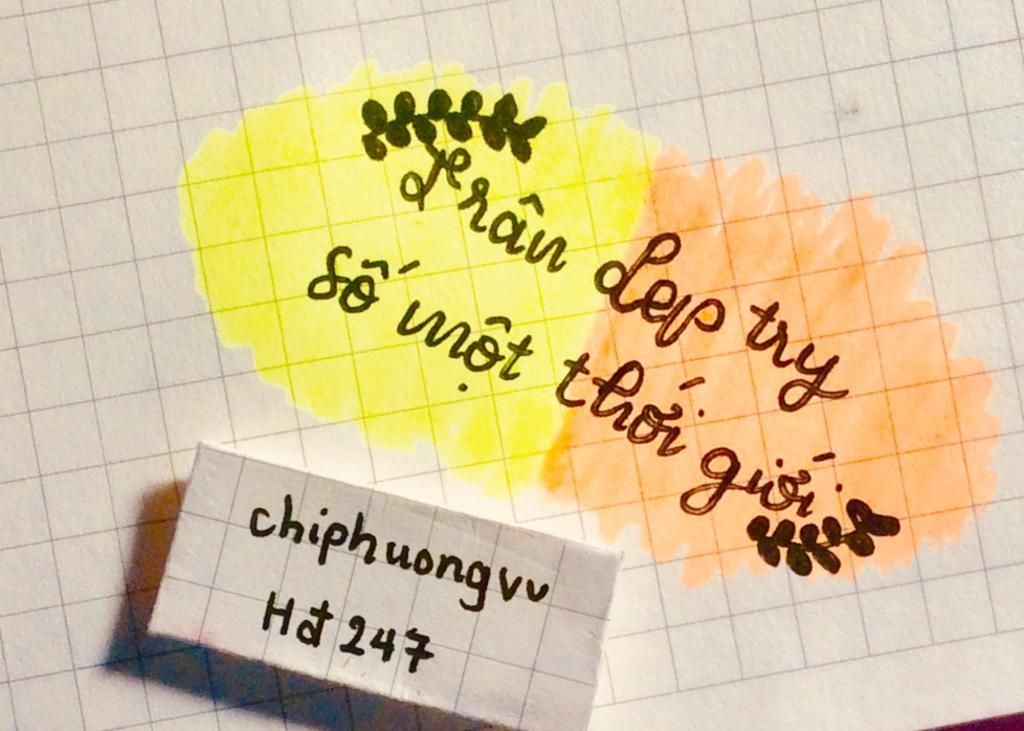 Trân dep try
số một thới giới
chiphuongvu
Hđ 247